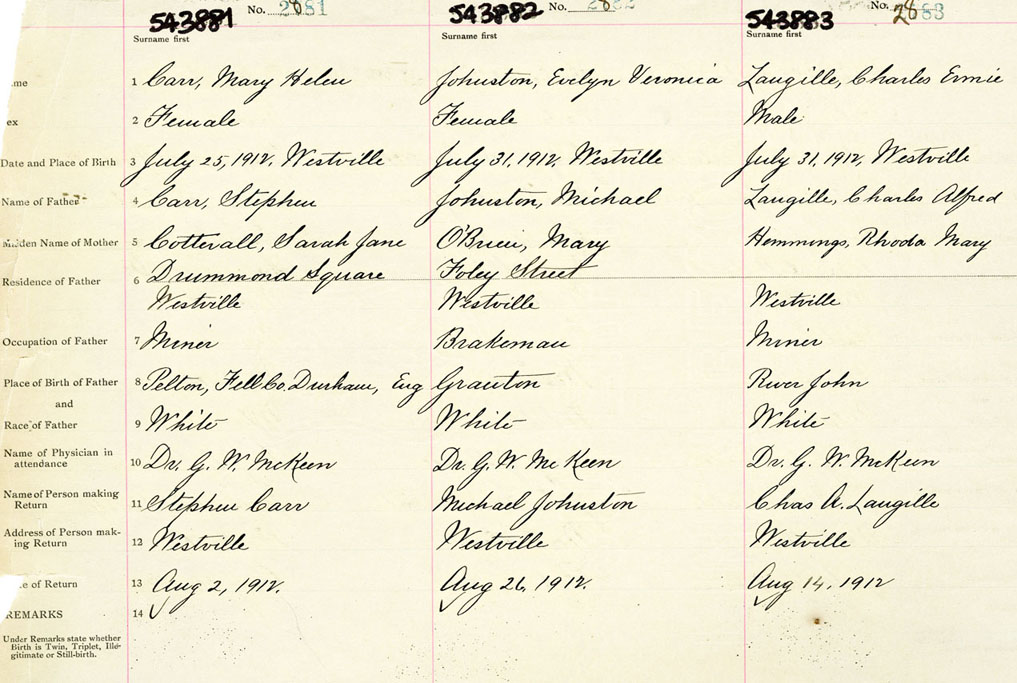 543881 No. 2881 543882 No. 2882 543883 No. 2883
Surname first Surname first Surname first
1 Carr, Mary Helen Johnston, Evelyn Veronica Langille, Charles Ernie
2 Female Female Male
Date and Place of Birth 3 July 25, 1912, Westville July 31, 1912, Westville July 31, 1912, Westville
Name of Father 4 Carr, Stephen Johnston, Michael Langille, Charles Alfred
Maiden Name of Mother 5 Cotterall, Sarah Jane O'Brien, Mary Hemmings, Rhoda Mary
Residence of Father 6 Drummond Square Foley Street
Westville Westville Westville
Occupation of Father 7 Miner Brakeman Miner
Place of Birth of Father 8 Pelton, Fell Co. Durham, Eng Granton River John
and
Race of Father 9 White White White
Name of Physician in
attendance 10 Dr. G. W. McKeen Dr. G. W. McKeen Dr. G. W. McKeen
Name of Person making
Return 11 Stephen Carr Michael Johnston Chas A. Langille
Address of Person mak-
ing Return 12 Westville Westville Westville
e of Return 13 Aug 2, 1912. Aug 26, 1912. Aug 14, 1912
REMARKS 14
Under Remarks state whether
Birth is Twin, Triplet, Ille-
gitimate or Still-birth.